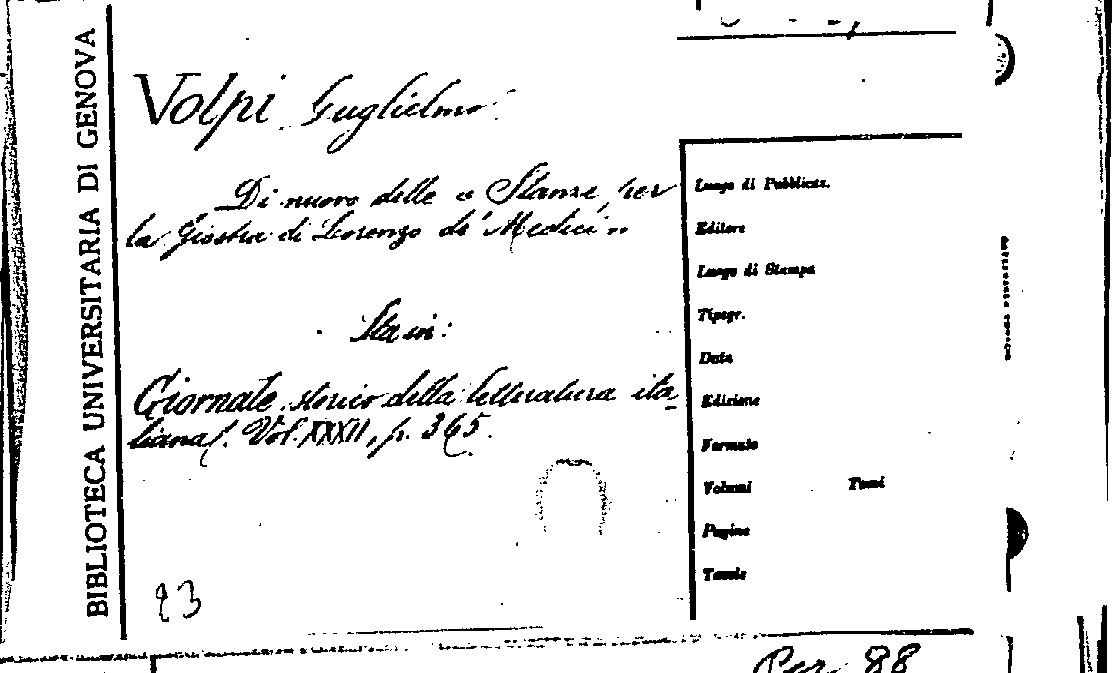 BIBLIOTECA UNIVERSITARIA DI GENOVA
Volpi Guglielmo
Di nuovo delle « Stanze per
la Giostra di Lorenzo de' Medici »
Sta in:
Giornale storico della letteratura ita-
liana. Vol. XXXII, p. 365.
23
Luogo di Pubblicaz.
Editore
Luogo di Stampa
Tipogr.
Data
Edizione
Formato
Volumi Tomi
Pagine
Tavole
Per. 88